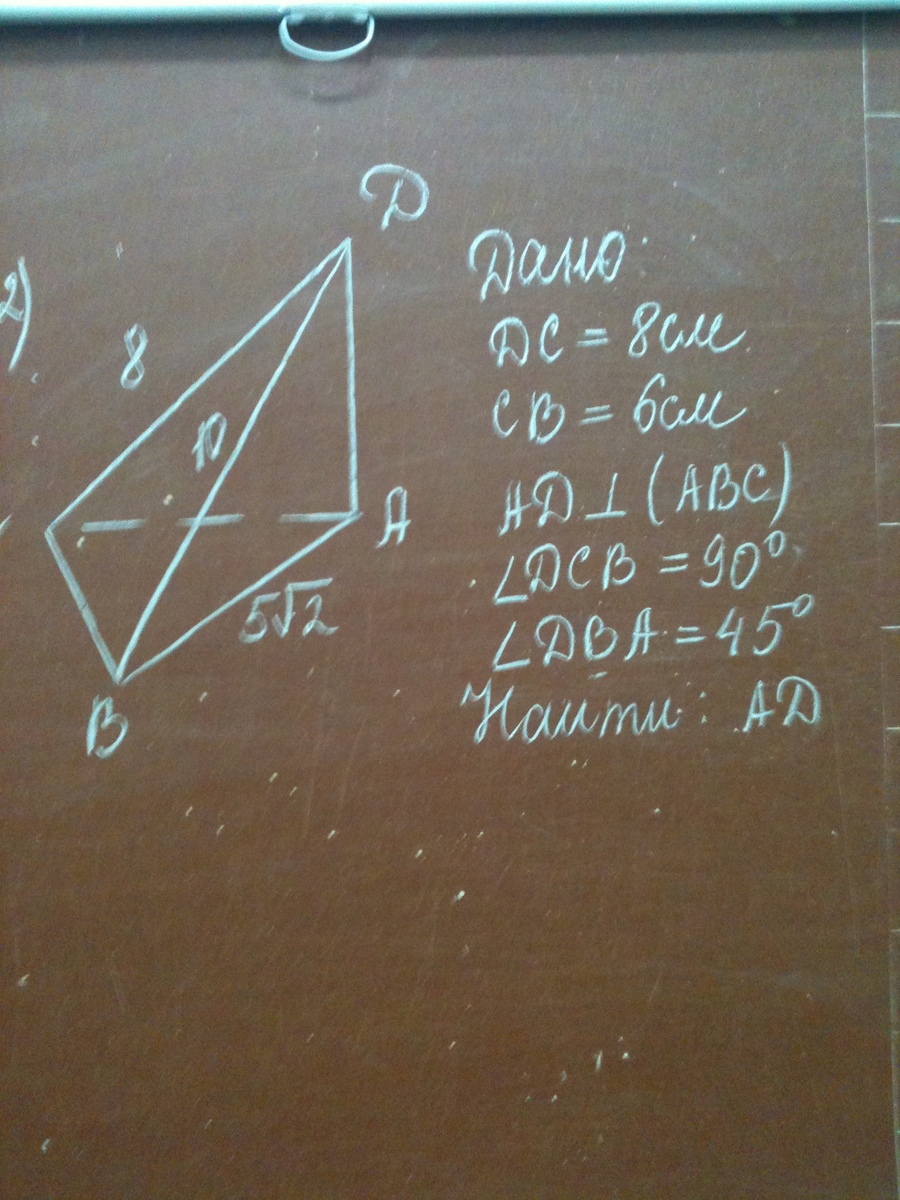 D
2)
Дано:
8
DC = 8см
CB = 6см
10
AD ⊥ (ABC)
A
∠DCB = 90°
5√2
∠DBA = 45°
B
Найти: AD